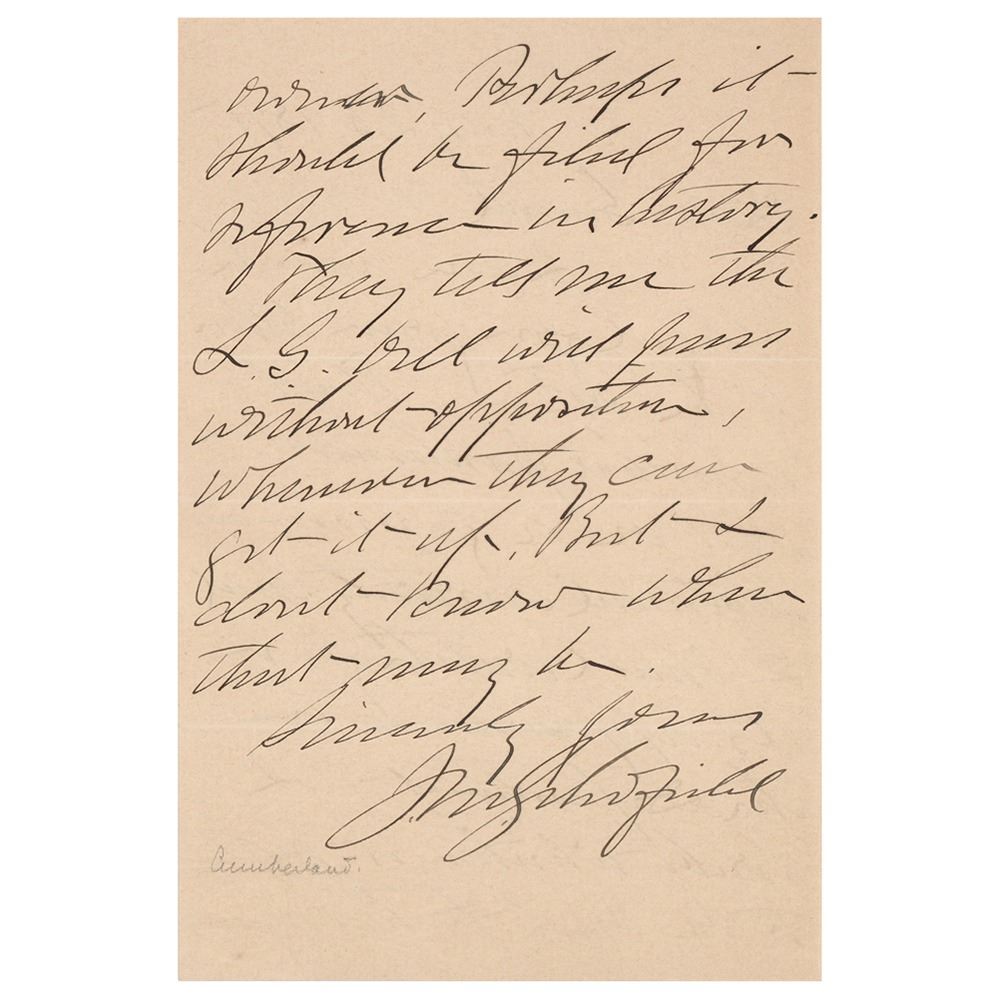 Perhaps it
should be filed for
reference in history.
They tell me the
L.G. bill will pass
without opposition,
whenever they can
get it up. But I
dont know when
that may be.
Sincerely yours
J.M. Schofield
Cumberland.